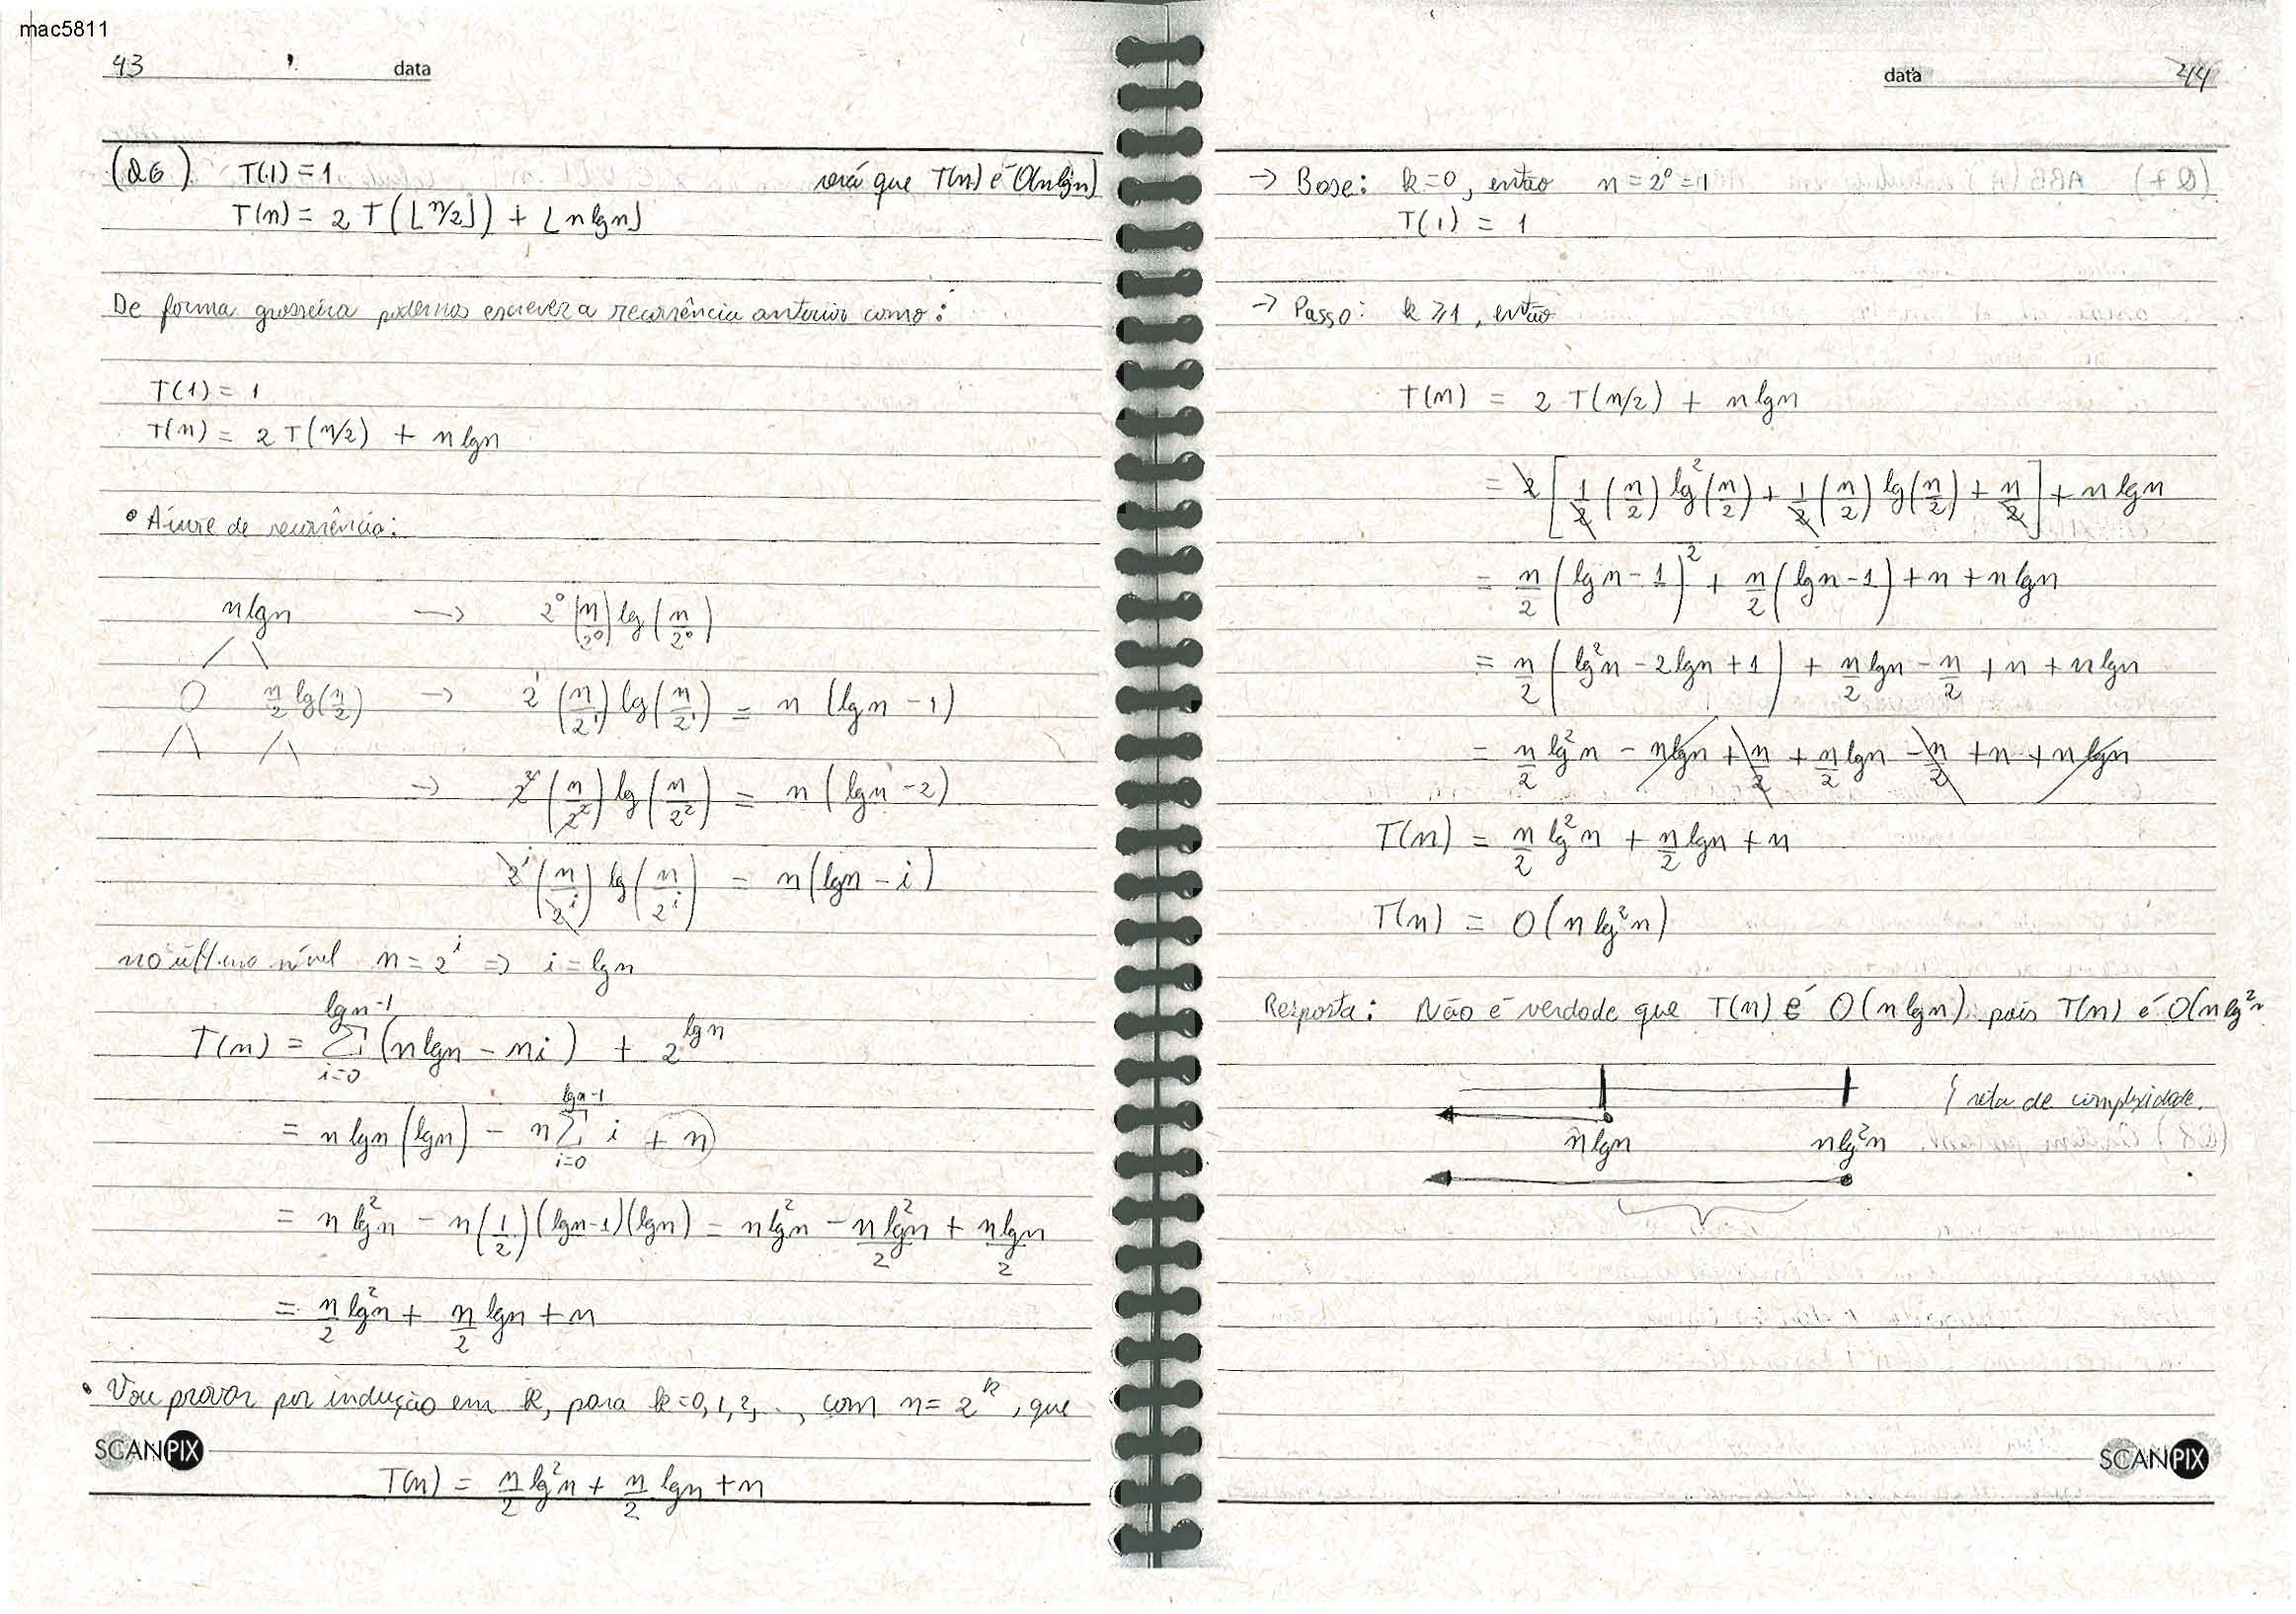 mac5811
43 data
(Q6) T(1) = 1 será que T(n) é O(n lg n)
T(n) = 2 T(⌊n/2⌋) + ⌊n lg n⌋
De forma grosseira podemos escrever a recorrência anterior como:
T(1) = 1
T(n) = 2 T(n/2) + n lg n
• Árvore de recorrência:
n lg n → 2⁰ (n/2⁰) lg (n/2⁰)
O n/2 lg(n/2) → 2¹ (n/2¹) lg (n/2¹) = n (lg n - 1)
→ 2² (n/2²) lg (n/2²) = n (lg n - 2)
2ⁱ (n/2ⁱ) lg (n/2ⁱ) = n (lg n - i)
no último nível n = 2ⁱ ⇒ i = lg n
T(n) = Σ_{i=0}^{lg n - 1} (n lg n - ni) + 2^{lg n}
= n lg n (lg n) - n Σ_{i=0}^{lg n - 1} i + n
= n lg² n - n (1/2) (lg n - 1)(lg n) = n lg² n - n lg² n/2 + n lg n/2
= n/2 lg² n + n/2 lg n + n
• Vou provar por indução em k, para k = 0, 1, 2, ..., com n = 2^k, que
SCANPIX
T(n) = n/2 lg² n + n/2 lg n + n
data 44
→ Base: k = 0, então n = 2⁰ = 1
T(1) = 1
→ Passo: k ⩾ 1, então
T(n) = 2 T(n/2) + n lg n
= 2 [1/2 (n/2) lg² (n/2) + 1/2 (n/2) lg (n/2) + n/2] + n lg n
= n/2 (lg n - 1)² + n/2 (lg n - 1) + n + n lg n
= n/2 (lg² n - 2 lg n + 1) + n/2 lg n - n/2 + n + n lg n
= n/2 lg² n - n lg n + n/2 + n/2 lg n - n/2 + n + n lg n
T(n) = n/2 lg² n + n/2 lg n + n
T(n) = O(n lg² n)
Resposta: Não é verdade que T(n) é O(n lg n) pois T(n) é O(n lg² n
} reta de complexidade.
n lg n n lg² n
SCANPIX